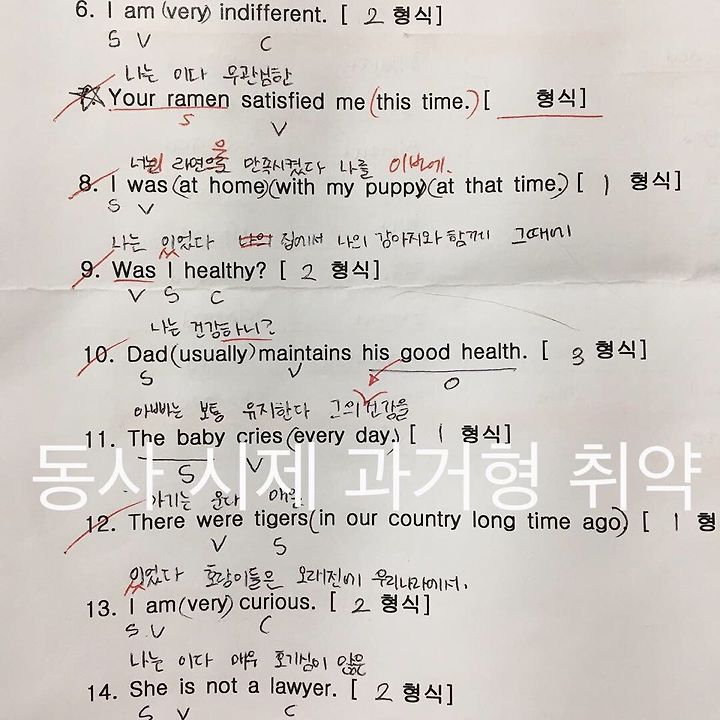 6. I am (very) indifferent. [ 2 형식]
S V C
나는 이다 무관심한
7. Your ramen satisfied me (this time.) [ 형식]
S V
라면은 만족시켰다 나를 이번에.
8. I was (at home)(with my puppy)(at that time.) [ 1 형식]
S V
나는 있었다 집에서 나의 강아지와 함께 그때에
9. Was I healthy? [ 2 형식]
V S C
나는 건강하니?
10. Dad (usually) maintains his good health. [ 3 형식]
S V O
아빠는 보통 유지한다 그의 건강을
11. The baby cries (every day.) [ 1 형식]
S V
동사 시제 과거형 취약
아기는 운다 매일.
12. There were tigers (in our country long time ago) [ 1 형
V S
있었다 호랑이들은 오래전에 우리나라에서.
13. I am (very) curious. [ 2 형식]
S V C
나는 이다 매우 호기심이 않은
14. She is not a lawyer. [ 2 형식]
S V C